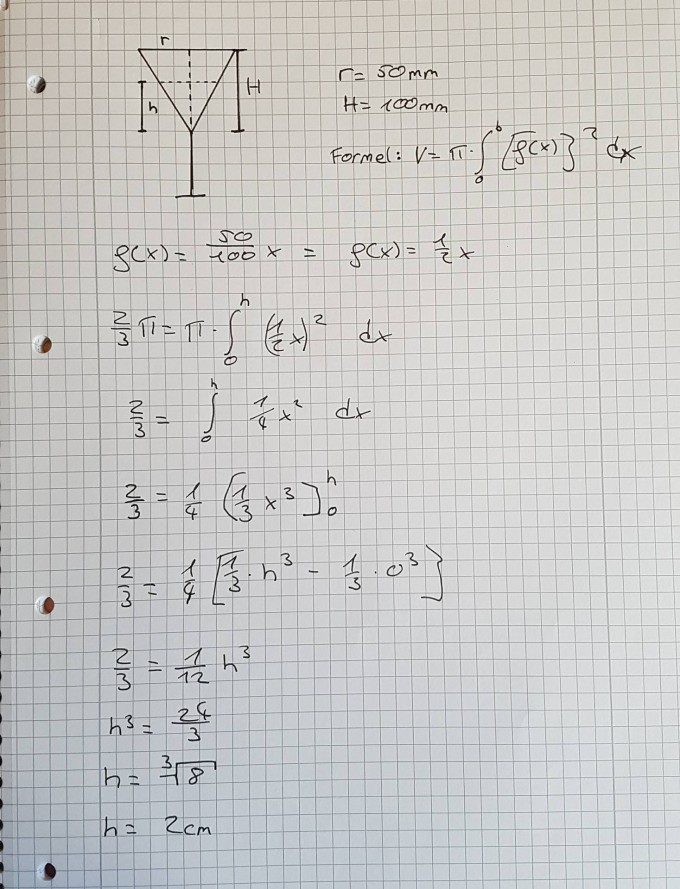 r
H
h
r = 50mm
H = 100mm
Formel: V = π · ∫₀ᵇ [f(x)]² dx
f(x) = 50/100 x = f(x) = 1/2 x
2/3 π = π · ∫₀ʰ (1/2 x)² dx
2/3 = ∫₀ʰ 1/4 x² dx
2/3 = 1/4 [1/3 x³]₀ʰ
2/3 = 1/4 [1/3 · h³ - 1/3 · 0³]
2/3 = 1/12 h³
h³ = 24/3
h = ³√8
h = 2cm